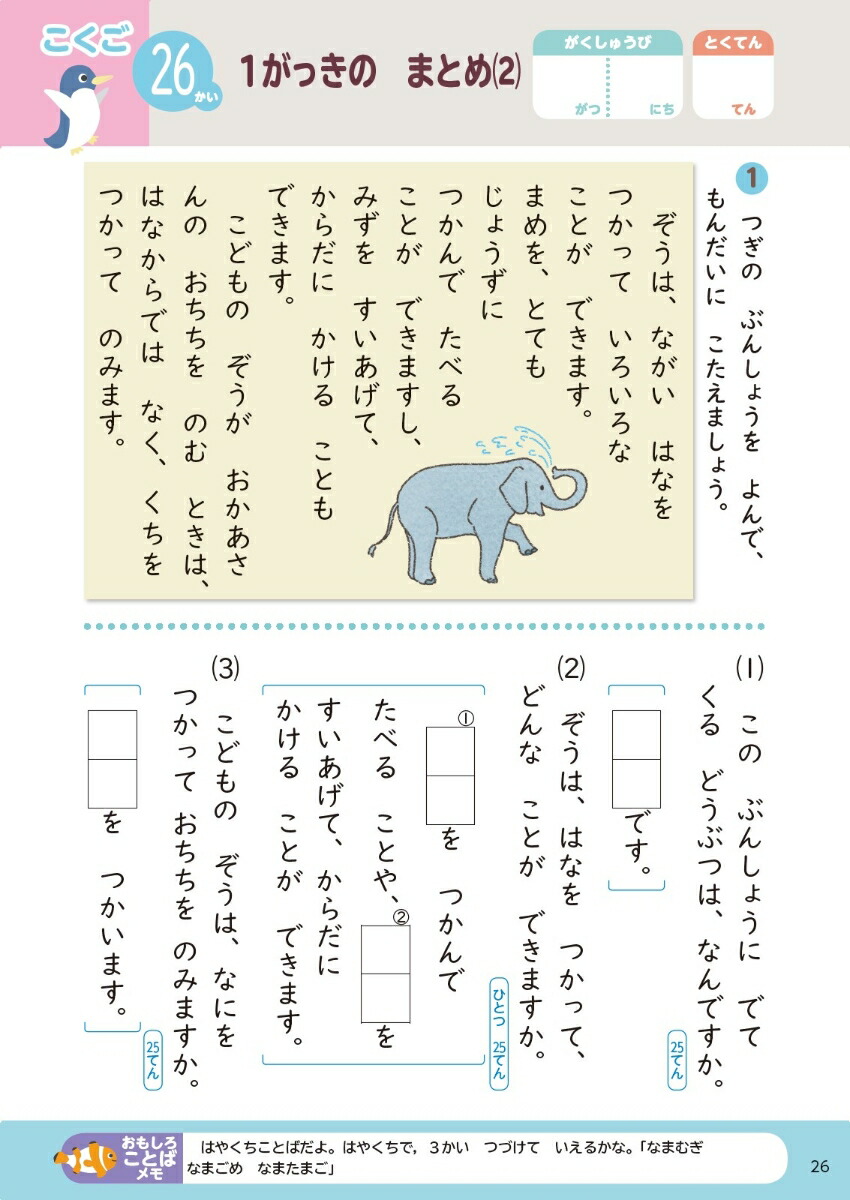 こくご
26かい
1がっきの まとめ⑵
がくしゅうび
がつ にち
とくてん
てん
1 つぎの ぶんしょうを よんで、
もんだいに こたえましょう。
ぞうは、ながい はなを
つかって いろいろな
ことが できます。
まめを、とても
じょうずに
つかんで たべる
ことが できますし、
みずを すいあげて、
からだに かける ことも
できます。
こどもの ぞうが おかあさ
んの おちちを のむ ときは、
はなからでは なく、くちを
つかって のみます。
⑴ この ぶんしょうに でて
くる どうぶつは、なんですか。
25てん
です。
⑵ ぞうは、はなを つかって、
どんな ことが できますか。
ひとつ 25てん
①を つかんで
たべる ことや、②を
すいあげて、からだに
かける ことが できます。
⑶ こどもの ぞうは、なにを
つかって おちちを のみますか。
25てん
を つかいます。
おもしろ
ことば
メモ
はやくちことばだよ。はやくちで，3かい つづけて いえるかな。「なまむぎ
なまごめ なまたまご」
26